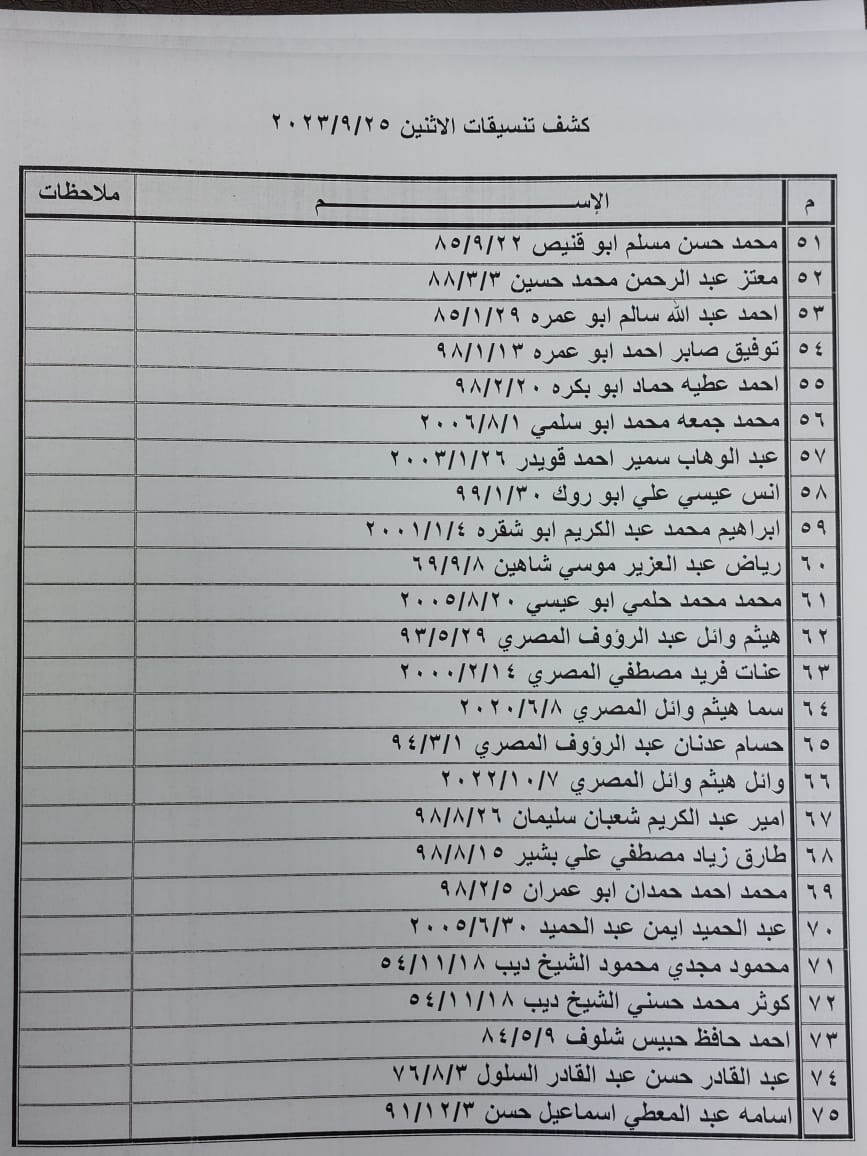 كشف تنسيقات الاثنين ٢٠٢٣/٩/٢٥
م الإســــــــــــــــــــم ملاحظات
٥١ محمد حسن مسلم ابو قنيص ٨٥/٩/٢٢
٥٢ معتز عبد الرحمن محمد حسين ٨٨/٣/٣
٥٣ احمد عبد الله سالم ابو عمره ٨٥/١/٢٩
٥٤ توفيق صابر احمد ابو عمره ٩٨/١/١٣
٥٥ احمد عطيه حماد ابو بكره ٩٨/٢/٢٠
٥٦ محمد جمعه محمد ابو سلمي ٢٠٠٦/٨/١
٥٧ عبد الوهاب سمير احمد قويدر ٢٠٠٣/١/٢٦
٥٨ انس عيسي علي ابو روك ٩٩/١/٣٠
٥٩ ابراهيم محمد عبد الكريم ابو شقره ٢٠٠١/١/٤
٦٠ رياض عبد العزير موسي شاهين ٦٩/٩/٨
٦١ محمد محمد حلمي ابو عيسي ٢٠٠٥/٨/٢٠
٦٢ هيثم وائل عبد الرؤوف المصري ٩٣/٥/٢٩
٦٣ عنات فريد مصطفي المصري ٢٠٠٠/٢/١٤
٦٤ سما هيثم وائل المصري ٢٠٢٠/٦/٨
٦٥ حسام عدنان عبد الرؤوف المصري ٩٤/٣/١
٦٦ وائل هيثم وائل المصري ٢٠٢٢/١٠/٧
٦٧ امير عبد الكريم شعبان سليمان ٩٨/٨/٢٦
٦٨ طارق زياد مصطفي علي بشير ٩٨/٨/١٥
٦٩ محمد احمد حمدان ابو عمران ٩٨/٢/٥
٧٠ عبد الحميد ايمن عبد الحميد ٢٠٠٥/٦/٣٠
٧١ محمود مجدي محمود الشيخ ديب ٥٤/١١/١٨
٧٢ كوثر محمد حسني الشيخ ديب ٥٤/١١/١٨
٧٣ احمد حافظ حبيس شلوف ٨٤/٥/٩
٧٤ عبد القادر حسن عبد القادر السلول ٧٦/٨/٣
٧٥ اسامه عبد المعطي اسماعيل حسن ٩١/١٢/٣